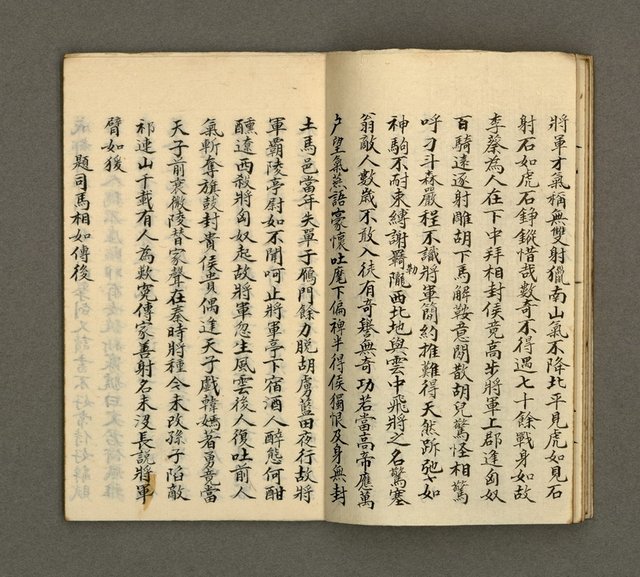 將軍才氣稱無雙射獵南山氣不降北平見虎如見石
射石如虎石錚鏦惜哉數奇不得遇七十餘戰身如故
李蔡為人在下中拜相封侯竟高步將軍上郡逢匈奴
百騎遠逐射雕胡下馬解鞍意閒散胡兒驚怪相驚
呼刁斗森嚴程不識將軍簡約推難得天然跅弛如
神駒不耐束縛謝羈勒隴西北地與雲中飛將之名驚塞
翁敵人數歲不敢入徒有奇譽無奇功若當高帝應萬
戶望氣燕語豪懷吐麾下偏裨半得侯獨恨及身無封
土馬邑當年失單于鴈門餘力脫胡虜藍田夜行故將
軍霸陵亭尉如不聞呵止將軍亭下宿酒人醉態何酣
醺遼西殺將匈奴起故將軍忽生風雲後人復吐前人
氣斬奪旗鼓封賞侯當貴偶逢天子戲韓嫣者勇竟當
天子前衷徹陵替家聲在秦時將種今未改孫子陷敵
祁連山千載有人為歎冤傳家善射名未沒長說將軍
臂如猨
題司馬相如傳後